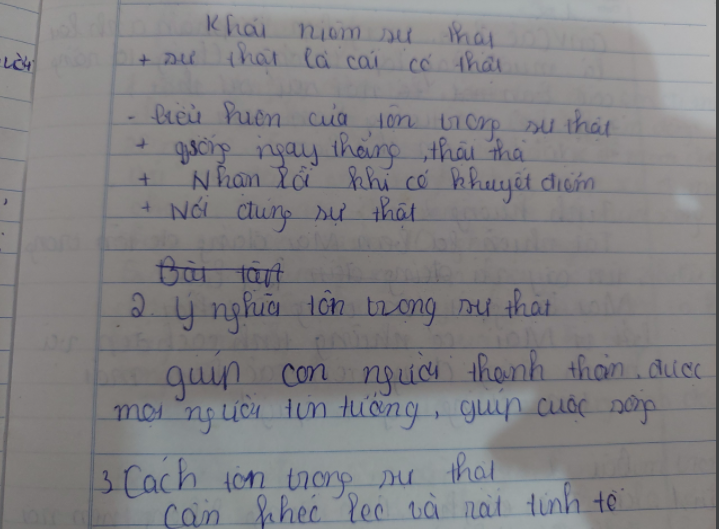 Khái niệm sự thật
+ sự thật là cái có thật
- Biểu hiện của tôn trọng sự thật
+ sống ngay thẳng, thật thà
+ Nhận lỗi khi có khuyết điểm
+ Nói đúng sự thật
Bài tập
2. Ý nghĩa tôn trọng sự thật
giúp con người thanh thản. được
mọi người tin tưởng, giúp cuộc sống
3. Cách tôn trọng sự thật
Cần khéo léo và rất tinh tế